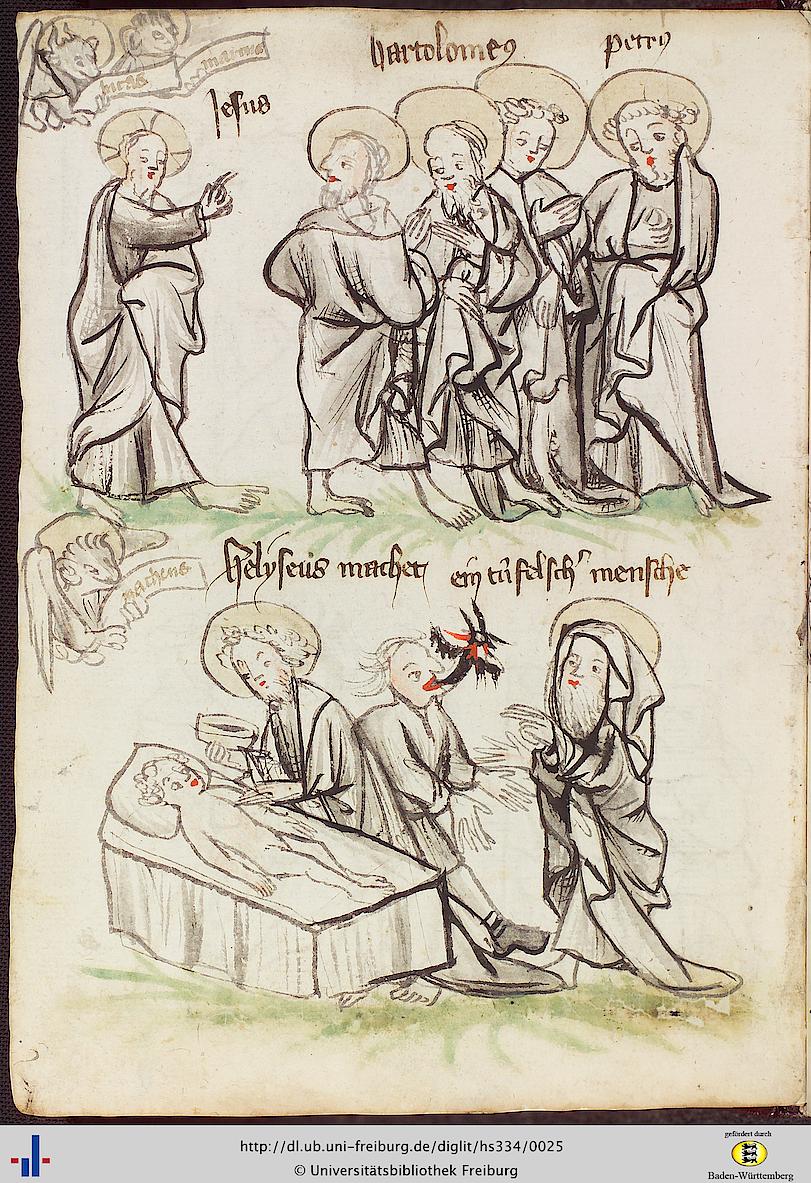 lucas
marcus
Jesus
bartolomeꝰ
petrꝰ
matheus
Helyseus machet
ein tüfelsch mensche
http://dl.ub.uni-freiburg.de/diglit/hs334/0025
© Universitätsbibliothek Freiburg
gefördert durch
Baden-Württemberg